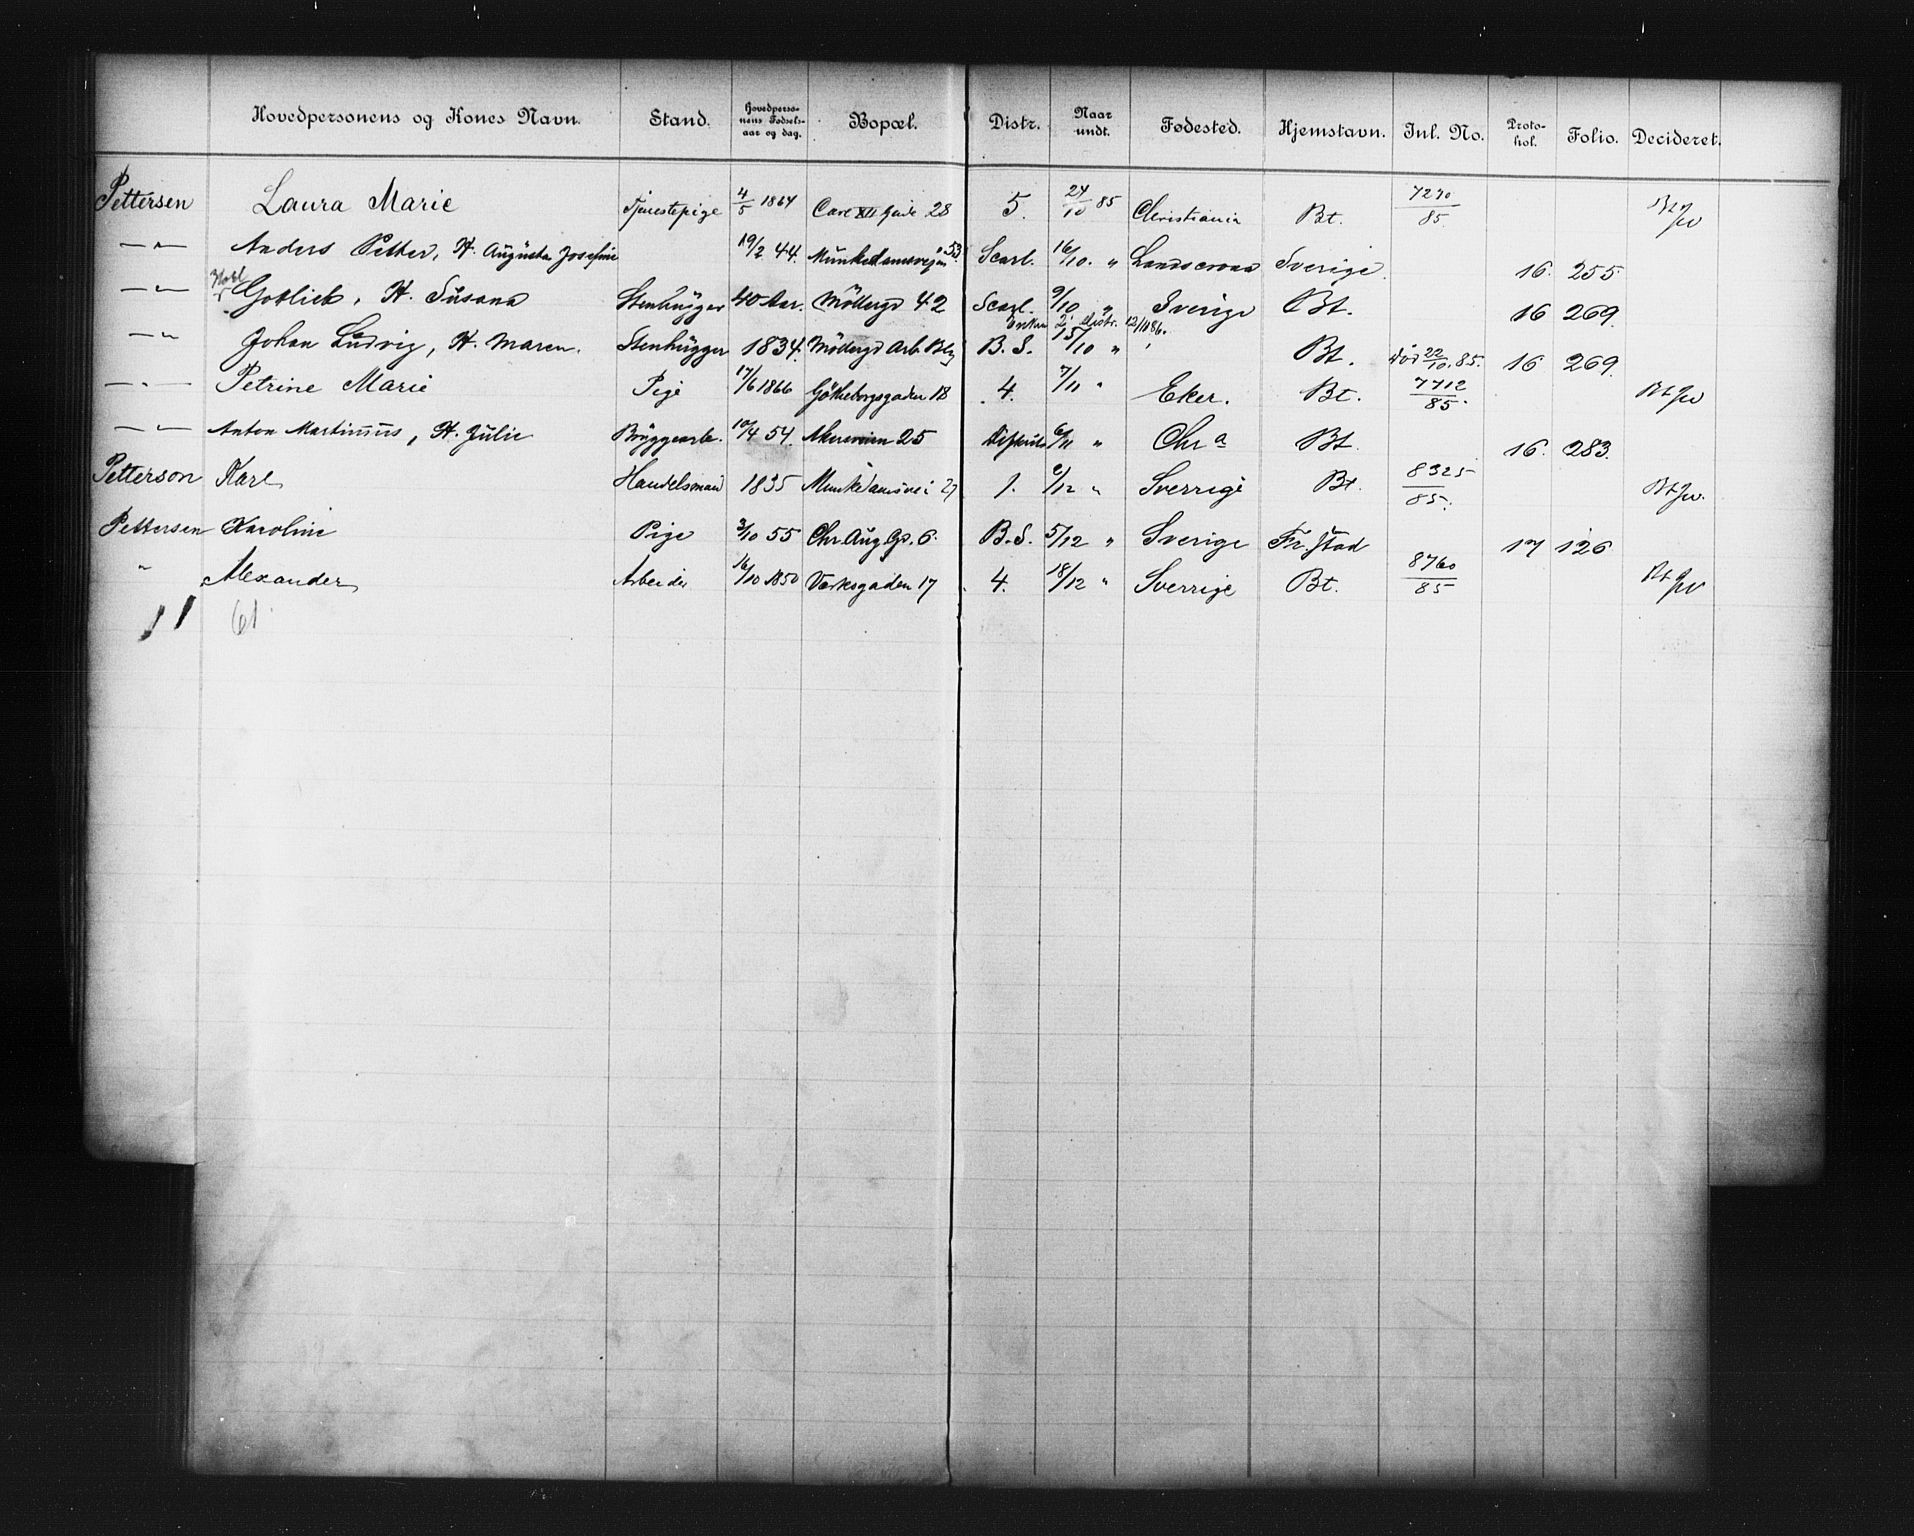 Hovedpersonens og Kones Navn. Stand. Hovedpersonens Fødselsaar og dag. Bopæl. Distr. Naar undt. Fødested. Hjemstavn. Inl. No. Protokol. Folio. Decideret.
Pettersen Laura Marie Tjenestepige 4/5 1864 Carl XII Gade 28 5. 24/10 85 Christiania Bt. 7270/85.
—„— Anders Petter, H. Augusta Josefine 19/2 44. Munkedamsvejen 53. Scarl. 16/10. „ Landscrona Sverige. 16. 255.
—„— Gotlieb, H. Susana Stenhugger 40 Aar. Møllergd 42 Scarl. 9/10 „ Sverige Bt. 16 269.
Enken 2 Distr. 12/1 86.
—„— Johan Ludvig, H. Maren. Stenhugger 1834. Møllergd Arb. B. S. 15/10 „ Bt. død 22/10. 85. 16 269.
—„— Petrine Marie Pige 17/6 1866 Götheborgsgaden 18 4. 7/11 „ Eker. Bt. 7712/85.
—„— Anton Martinius, H. Julie Bryggearb. 10/4 54. Akersveien 25 6/11 „ Chra Bt. 16. 283.
Petterson Karl Handelsmand 1835 Munkedamsvei 27 1. 2/12 „ Sverrige Bt. 8325/85.
Pettersen Karoline Pige 3/10 55 Chr. Aug. Gd. 6. B. S. 5/12 „ Sverige Fr.stad 17 126
„ Alexander Arbeider 16/10 1850 Værksgaden 17 4. 18/12 „ Sverrige Bt. 8760/85
11 61.